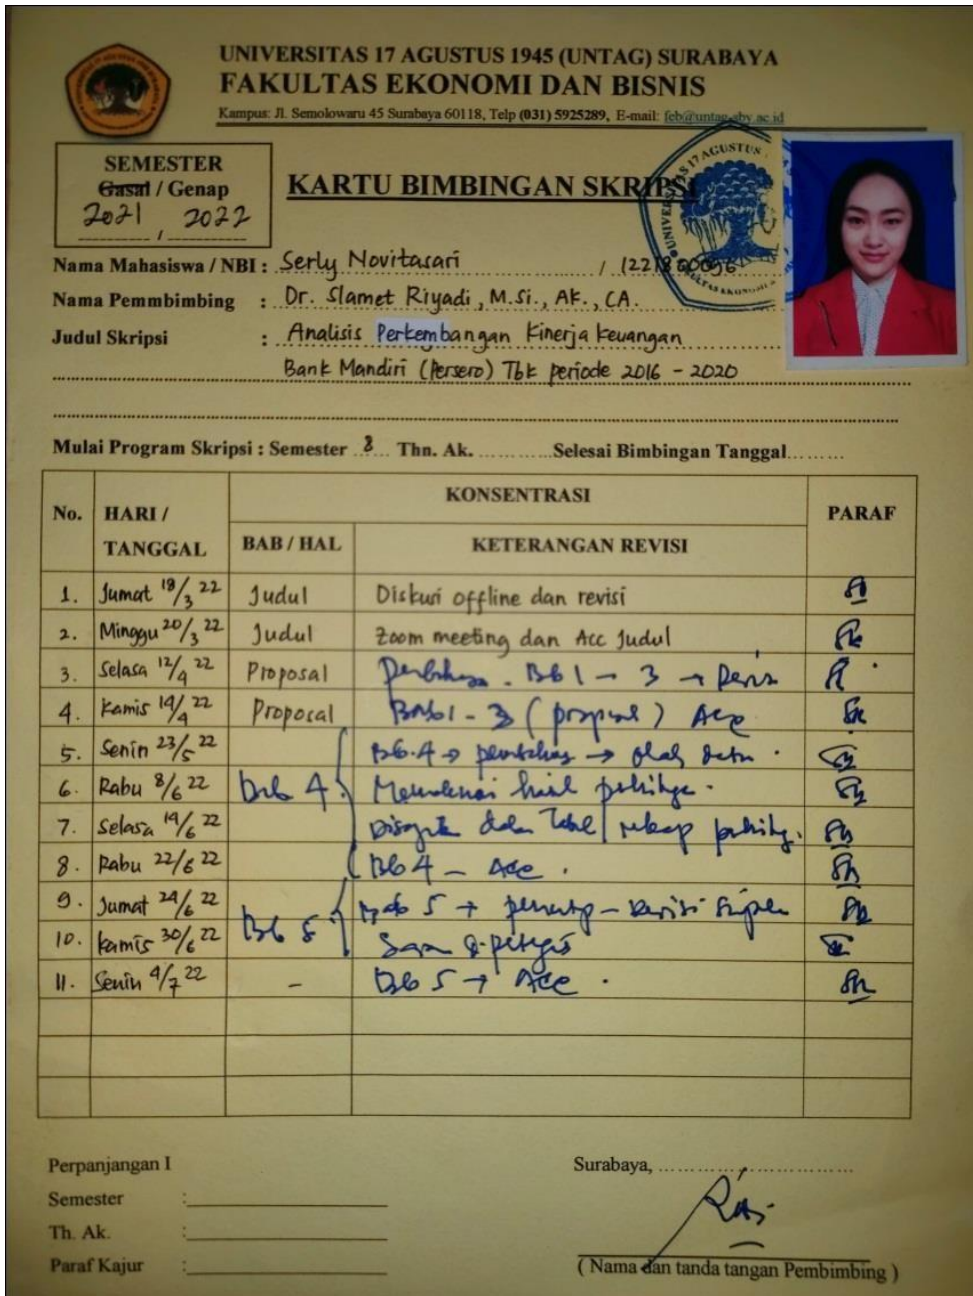 UNIVERSITAS 17 AGUSTUS 1945 (UNTAG) SURABAYA
FAKULTAS EKONOMI DAN BISNIS
Kampus: Jl. Semolowaru 45 Surabaya 60118, Telp (031) 5925289, E-mail: feb@untag-sby.ac.id
SEMESTER
Gasal / Genap
2021 / 2022
KARTU BIMBINGAN SKRIPSI
Nama Mahasiswa / NBI : Serly Novitasari /
Nama Pemmbimbing : Dr. Slamet Riyadi, M.Si., Ak., CA.
Judul Skripsi : Analisis Perkembangan Kinerja Keuangan
Bank Mandiri (Persero) Tbk periode 2016 - 2020
Mulai Program Skripsi : Semester 8 Thn. Ak. ............Selesai Bimbingan Tanggal.........
No. HARI / TANGGAL KONSENTRASI PARAF
BAB / HAL KETERANGAN REVISI
1. Jumat 18/3 22 Judul Diskusi offline dan revisi
2. Minggu 20/3 22 Judul Zoom meeting dan Acc Judul
3. Selasa 12/4 22 Proposal Bab 1 - 3 → Revisi
4. Kamis 14/4 22 Proposal Bab 1 - 3 (proposal) Acc
5. Senin 23/5 22 Bab 4 → → olah data
6. Rabu 8/6 22 Bab 4
7. Selasa 14/6 22 dalam Tabel / rekap
8. Rabu 22/6 22 Bab 4 - Acc.
9. Jumat 24/6 22 Bab 5 → - Revisi
10. Kamis 30/6 22 Bab 5
11. Senin 4/7 22 - Bab 5 → Acc.
Perpanjangan I
Semester :
Th. Ak. :
Paraf Kajur :
Surabaya, ..............................
( Nama dan tanda tangan Pembimbing )